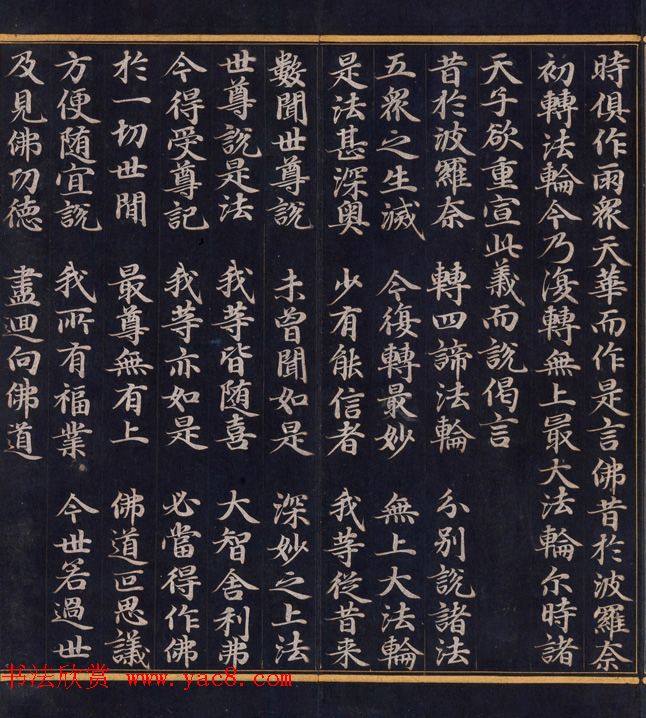 時俱作雨眾天華而作是言佛昔於波羅奈
初轉法輪今乃復轉無上最大法輪尒時諸
天子欲重宣此義而說偈言
昔於波羅奈　轉四諦法輪　分別說諸法
五眾之生滅　今復轉最妙　無上大法輪
是法甚深奧　少有能信者　我等從昔来
數聞世尊說　未曾聞如是　深妙之上法
世尊說是法　我等皆随喜　大智舍利弗
今得受尊記　我等亦如是　必當得作佛
於一切世間　最尊無有上　佛道叵思議
方便随宜說　我所有福業　今世若過世
及見佛功德　盡迴向佛道
书法欣赏 www.yac8.com